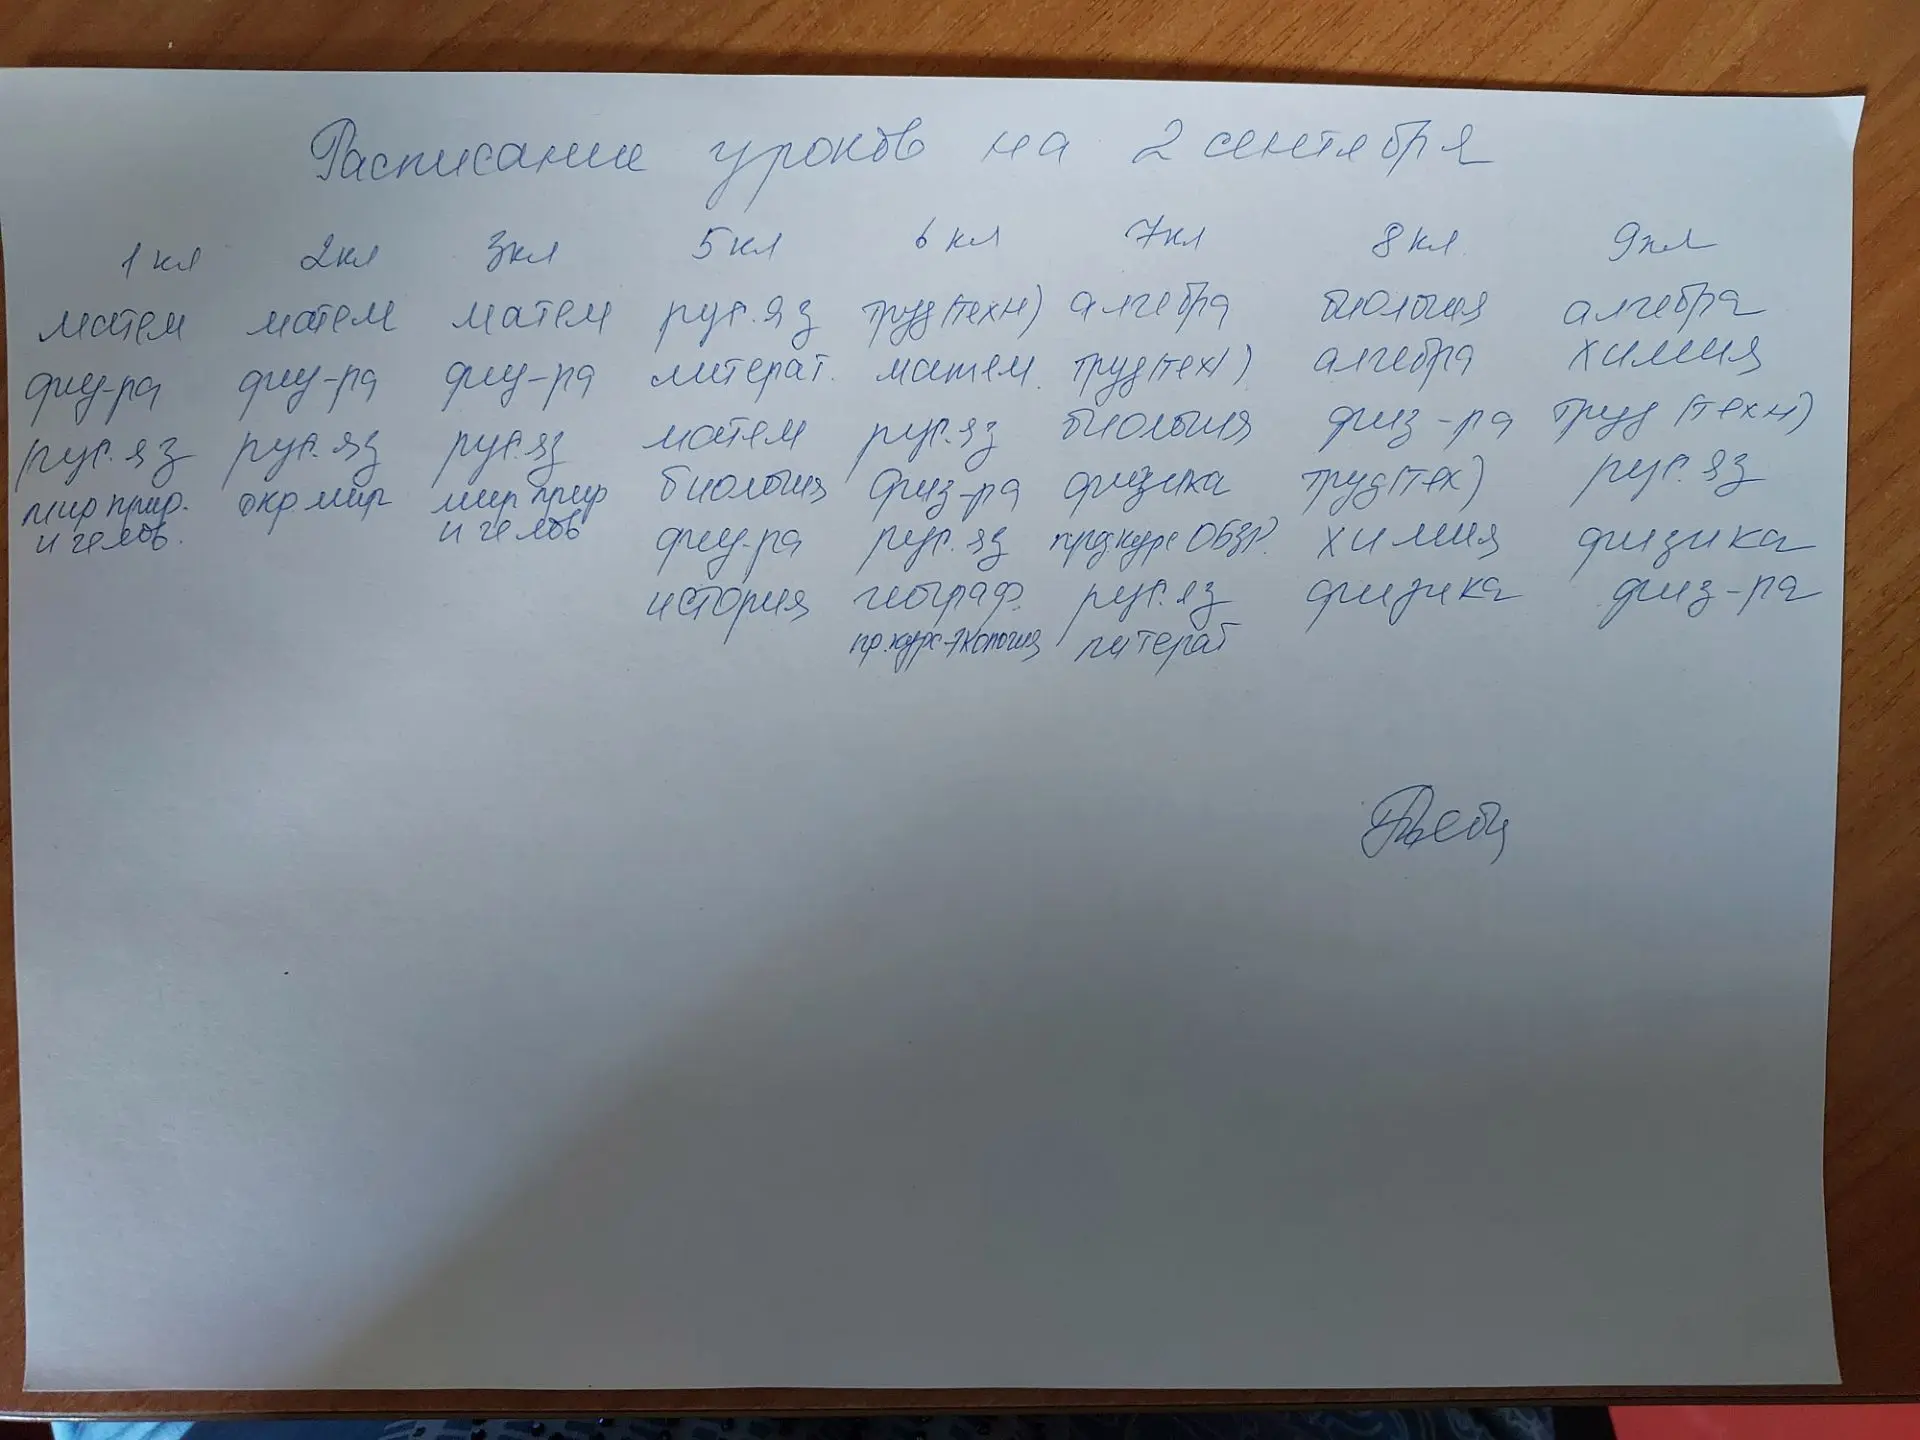 Расписание уроков на 2 сентября
1 кл 2 кл 3 кл 5 кл 6 кл 7 кл 8 кл 9 кл
матем матем матем рус. яз труд (техн) алгебра биология алгебра
физ-ра физ-ра физ-ра литерат. матем. труд (тех) алгебра химия
рус. яз рус. яз рус. яз матем рус. яз биология физ-ра труд (техн)
мир прир. окр мир мир прир биология физ-ра физика труд (тех) рус. яз
и челов. и челов физ-ра рус. яз курс ОБЗР. химия физика
история географ. рус. яз физика физ-ра
пр. курс-экология литерат